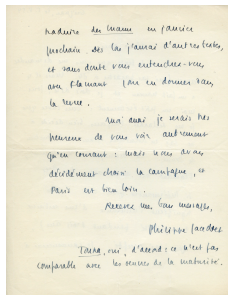 traduire des Mann en janvier
prochain. Dès lors j'aurai d'autres textes,
et sans doute vous entendrez-vous
avec Flamant pour en donner dans
la revue.
Moi aussi je serais très
heureux de vous voir autrement
qu'en courant : mais nous avons
décidément choisi la campagne, et
Paris est bien loin.
Recevez mes bons messages,
Philippe Jaccottet
oui, d'accord : ce n'est pas
comparable avec les œuvres de la maturité.